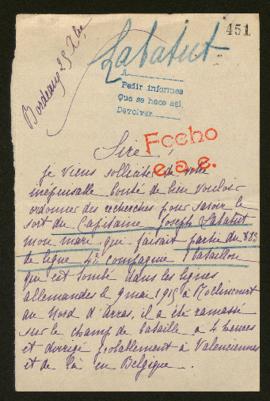 451
Labatut
Bordeaux 25 Xbre
A
Pedir informes
Que se hace así.
Devolver
Fecho
e.a.e.
Sire !
Je viens solliciter de votre
inépuisable bonté de bien vouloir
ordonner des recherches pour savoir le
sort du Capitaine Joseph Labatut
mon mari, qui faisait partie du
de ligne 4e compagnie 1 bataillon
qui est tombé dans les lignes
allemandes le 9 mai 1915 à Roclincourt
au Nord d'Arras, il a été ramassé
sur le champ de bataille à 4 heures
et dirigé probablement à Valenciennes
et de là en Belgique.